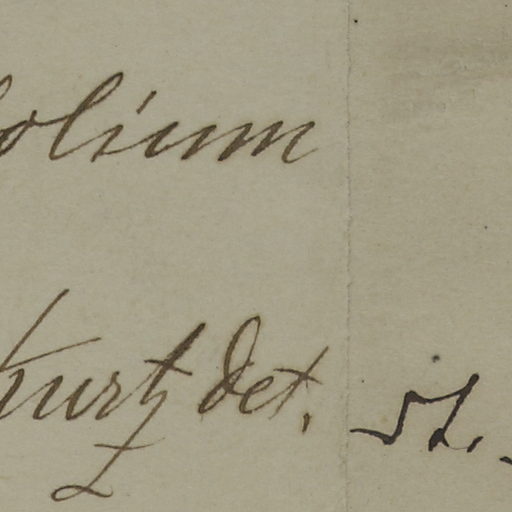 olium
Kurtz det.